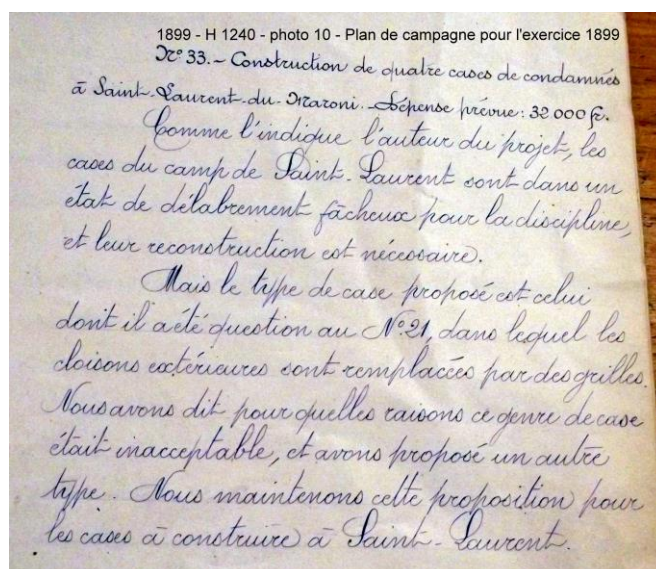 1899 - H 1240 - photo 10 - Plan de campagne pour l'exercice 1899
N° 33. - Construction de quatre cases de condamnés
à Saint-Laurent-du-Maroni. - Dépense prévue : 32.000 fr.
Comme l'indique l'auteur du projet, les
cases du camp de Saint-Laurent sont dans un
état de délabrement fâcheux pour la discipline,
et leur reconstruction est nécessaire.
Mais le type de case proposé est celui
dont il a été question au N° 21, dans lequel les
cloisons extérieures sont remplacées par des grilles.
Nous avons dit pour quelles raisons ce genre de case
était inacceptable, et avons proposé un autre
type. Nous maintenons cette proposition pour
les cases à construire à Saint-Laurent.